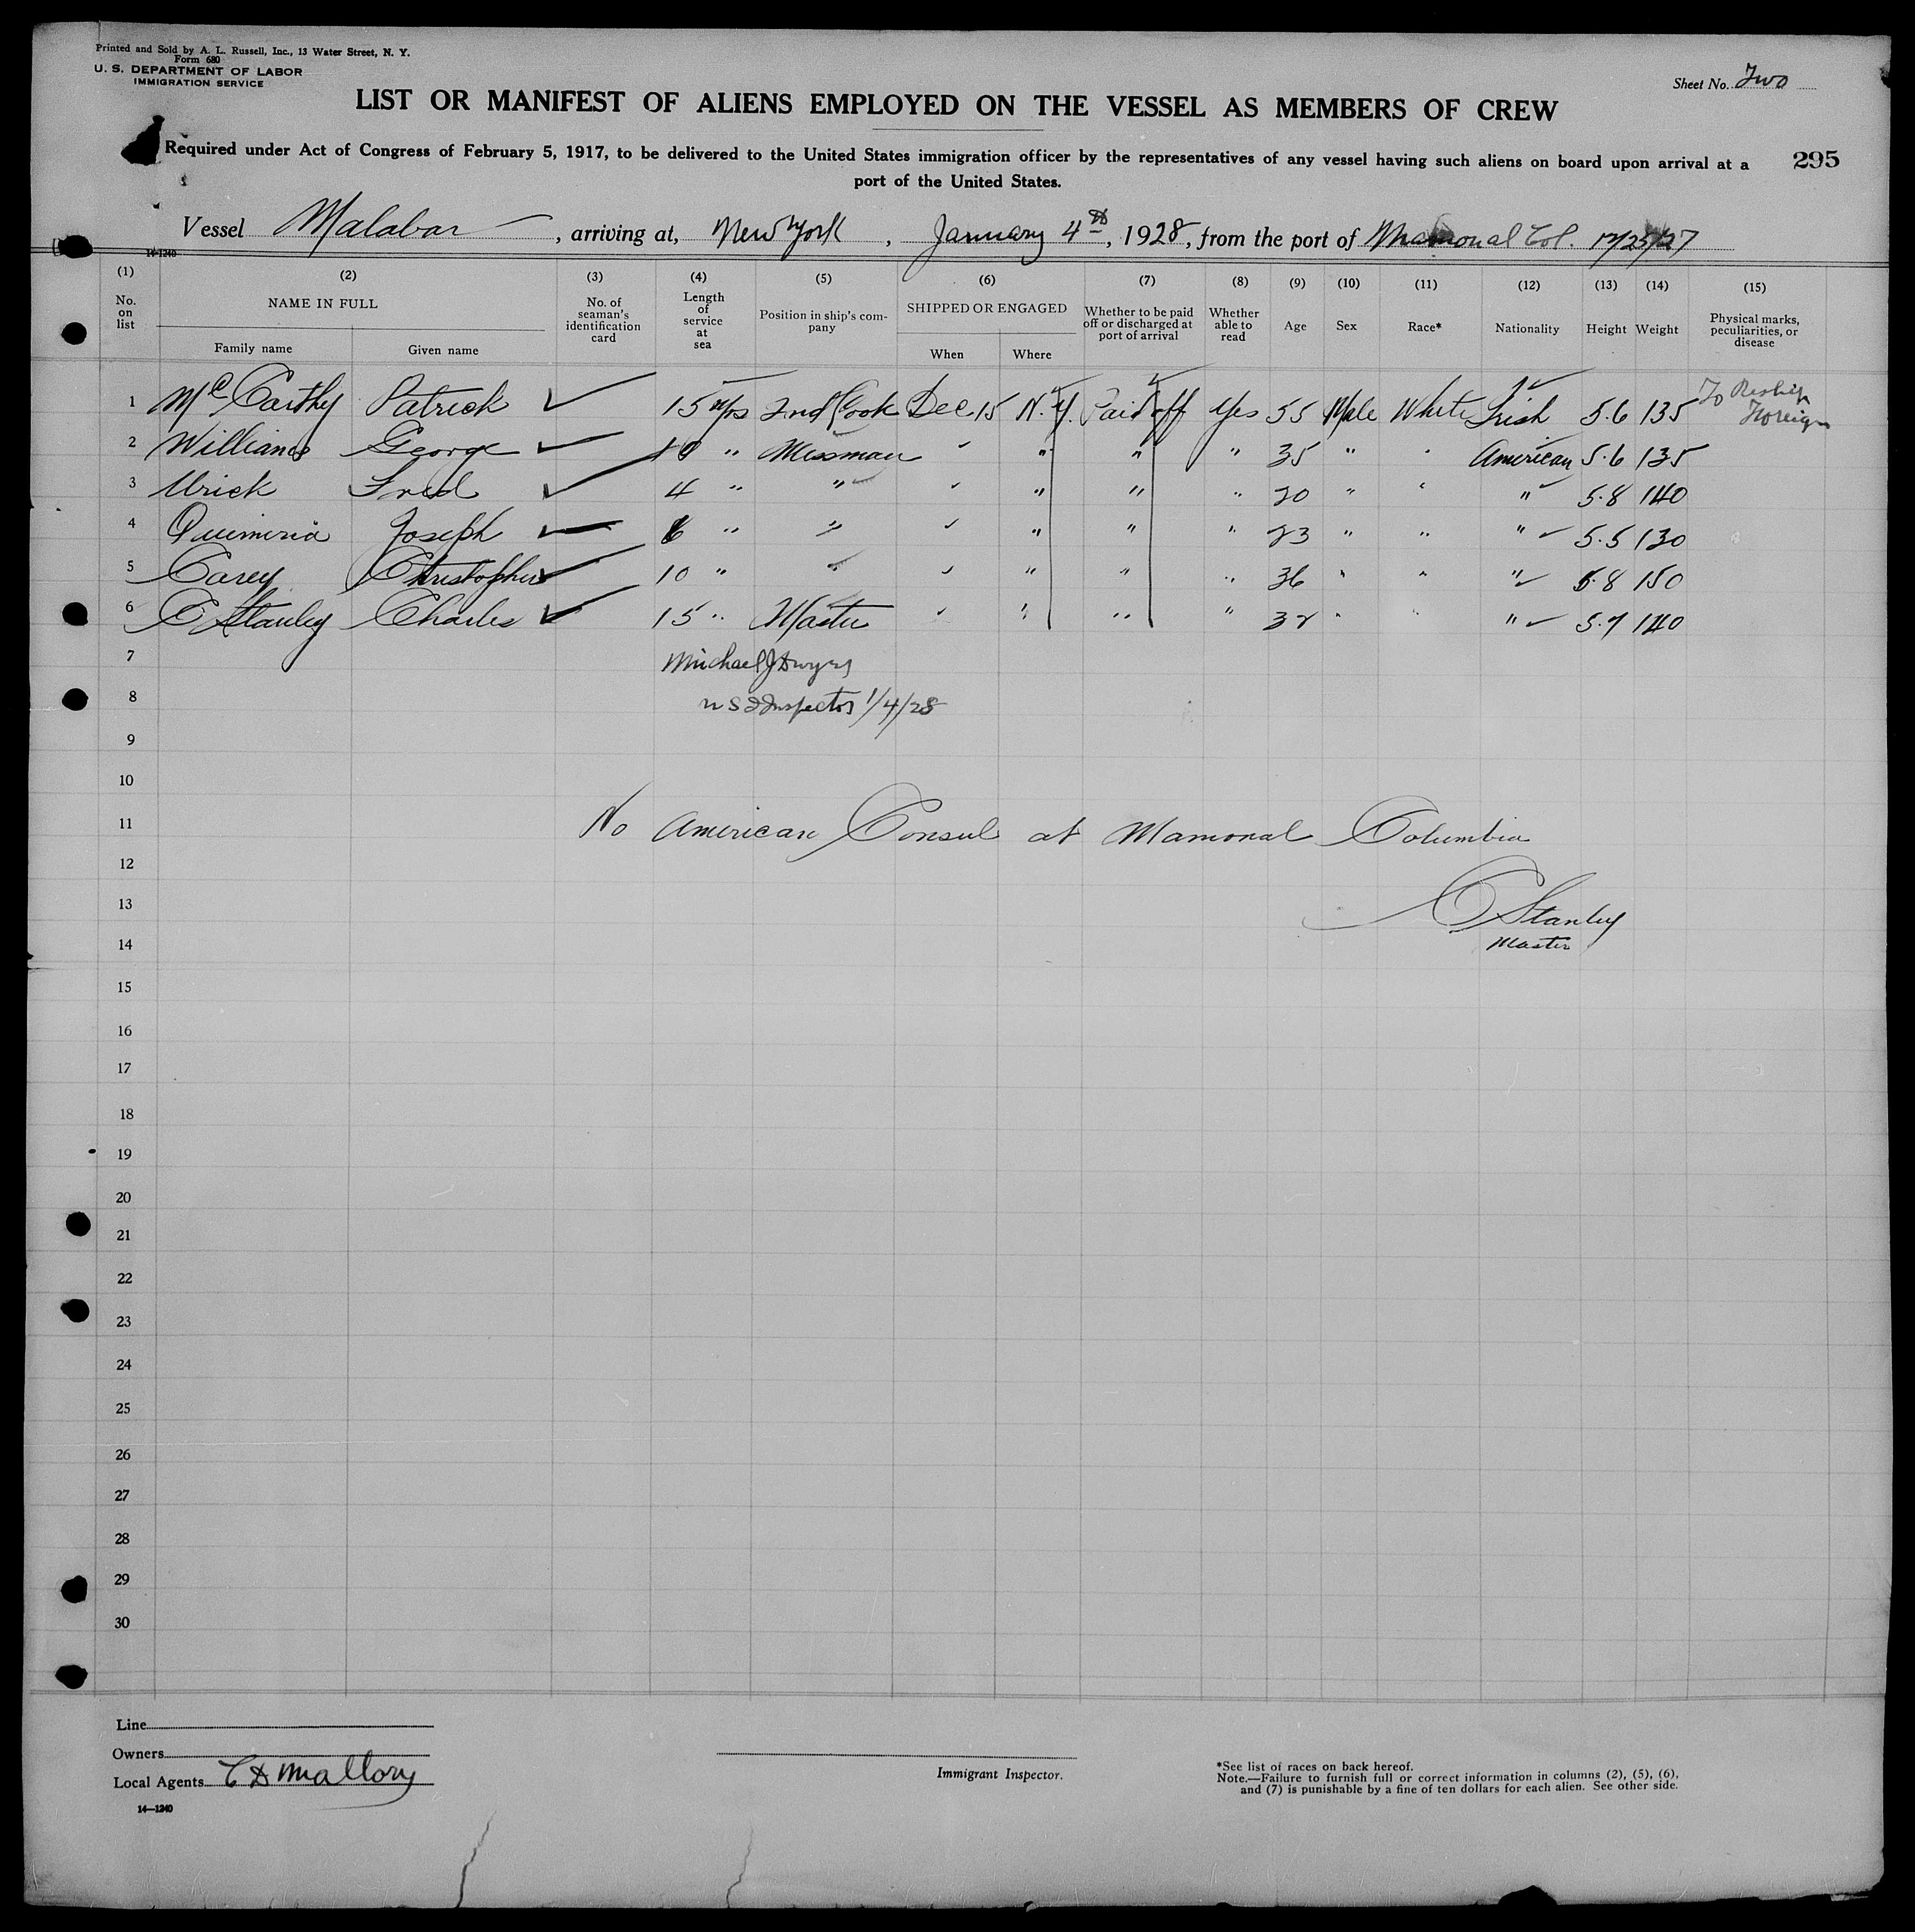 Printed and Sold by A. L. Russell, Inc., 13 Water Street, N. Y.
Form 680
U. S. DEPARTMENT OF LABOR
IMMIGRATION SERVICE
Sheet No. Two
LIST OR MANIFEST OF ALIENS EMPLOYED ON THE VESSEL AS MEMBERS OF CREW
Required under Act of Congress of February 5, 1917, to be delivered to the United States immigration officer by the representatives of any vessel having such aliens on board upon arrival at a
port of the United States.
295
Vessel Malabar, arriving at, New York, January 4th, 1928, from the port of Mamonal Col. 12/25/27
14-1240
(1) (2) (3) (4) (5) (6) (7) (8) (9) (10) (11) (12) (13) (14) (15)
No. on list
NAME IN FULL
Family name Given name
No. of seaman's identification card
Length of service at sea
Position in ship's company
SHIPPED OR ENGAGED
When Where
Whether to be paid off or discharged at port of arrival
Whether able to read
Age
Sex
Race*
Nationality
Height
Weight
Physical marks, peculiarities, or disease
1 McCarthy Patrick ✓ 15 yrs 2nd Cook Dec 15 N.Y. Paid off Yes 55 Male White Irish 5.6 135 To Reship Foreign
2 Williams George ✓ 10 " Messman " " " " 35 " " American 5.6 135
3 Urick Fred ✓ 4 " " " " " " 20 " " " 5.8 140
4 Joseph ✓ 6 " " " " " " 23 " " " 5.5 130
5 Carey Christopher ✓ 10 " " " " " " 36 " " " 5.8 150
6 C Stanley Charles ✓ 15 " Master " " " " 32 " " " 5.7 140
7 Michael J Dwyer
8 U S I Inspector 1/4/28
9
10
11 No American Consul at Mamonal Columbia
12
13 C Stanley
14 Master
15
16
17
18
19
20
21
22
23
24
25
26
27
28
29
30
Line
Owners
Local Agents C D Mallory
14—1240
Immigrant Inspector.
*See list of races on back hereof.
Note.—Failure to furnish full or correct information in columns (2), (5), (6),
and (7) is punishable by a fine of ten dollars for each alien. See other side.